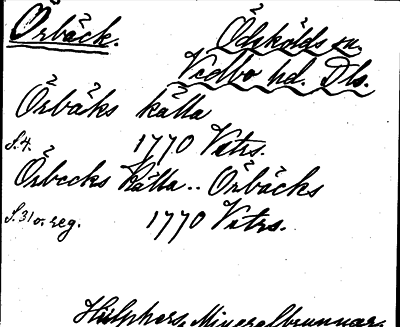 Örbäck.
Ödskölds sn,
Vedbo hd. Dls.
Örbäks källa
S.4. 1770 Vtrs.
Örbecks källa .. Örbäcks
S.31 o. reg. 1770 Vtrs.
Hülphers, Mineralbrunnar